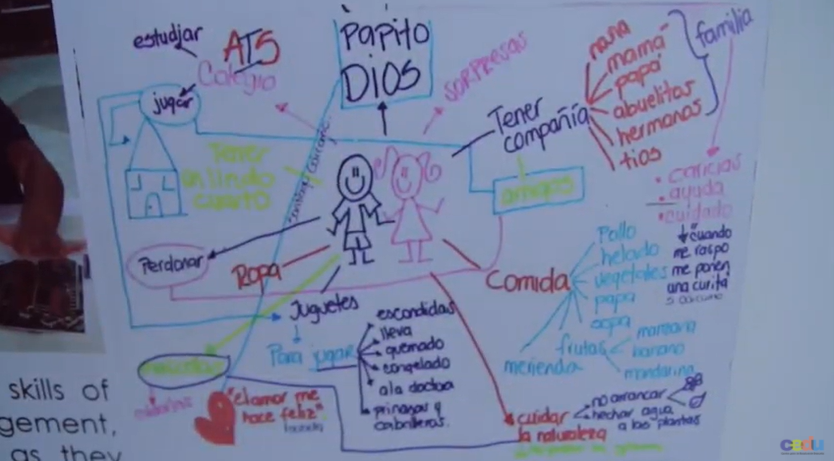 estudiar
ATS
Colegio
jugar
Papito
DIOS
SORPRESAS
Tener
compañía
nana
mamá
papá
abuelitas
hermanas
tios
familia
caricias
ayuda
cuidado
cuando
me raspo
me ponen
una curita
Tener
un lindo
cuarto
amigos
Perdonar
Ropa
Comida
Pollo
helado
vegetales
papa
sopa
frutas
manzana
banano
mandarina
merienda
Juguetes
Para jugar
escondidas
lleva
quemado
congelado
a la doctora
"el amor me
hace feliz"
cuidar
la naturaleza
no arrancar
hechar agua
a las plantas
skills of
gement,
as they
cedu